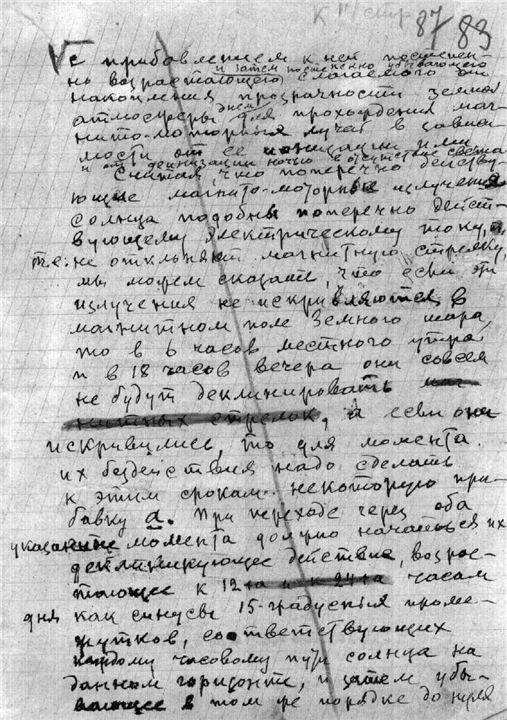 К 11 стр
87 83
V с прибавлением к ней постепен-
и затем постепенно убывающего
но возрастающего слагаемого от
накопления прозрачности земной
днем
атмосферы для прохождения маг-
нито-моторных лучей в зависи-
мости от ее ионизации ими
и от деионизации ночью в отсутствие света
Считая, что поперечно действу-
ющие магнито-моторные излучения
солнца подобны поперечно дейст-
вующему электрическому току, и,
т.е. не отклоняют магнитную стрелку,
мы можем сказать, что если эти
излучения не искривляются в
магнитном поле земного шара,
то в 6 часов местного утра
и в 18 часов вечера они совсем
не будут деклинировать маг-
нитных стрелок, а если они
искривились, то для момента
их бездействия надо сделать
к этим срокам некоторую при-
бавку а. При переходе через оба
указанные момента должно начаться их
деклинирующее действие, возрас-
тающее к 12 часам
дня как синусы 15-градусных проме-
жутков, соответствующих
каждому часовому пути солнца на
данном горизонте, и затем убы-
вающее в том же порядке до нуля